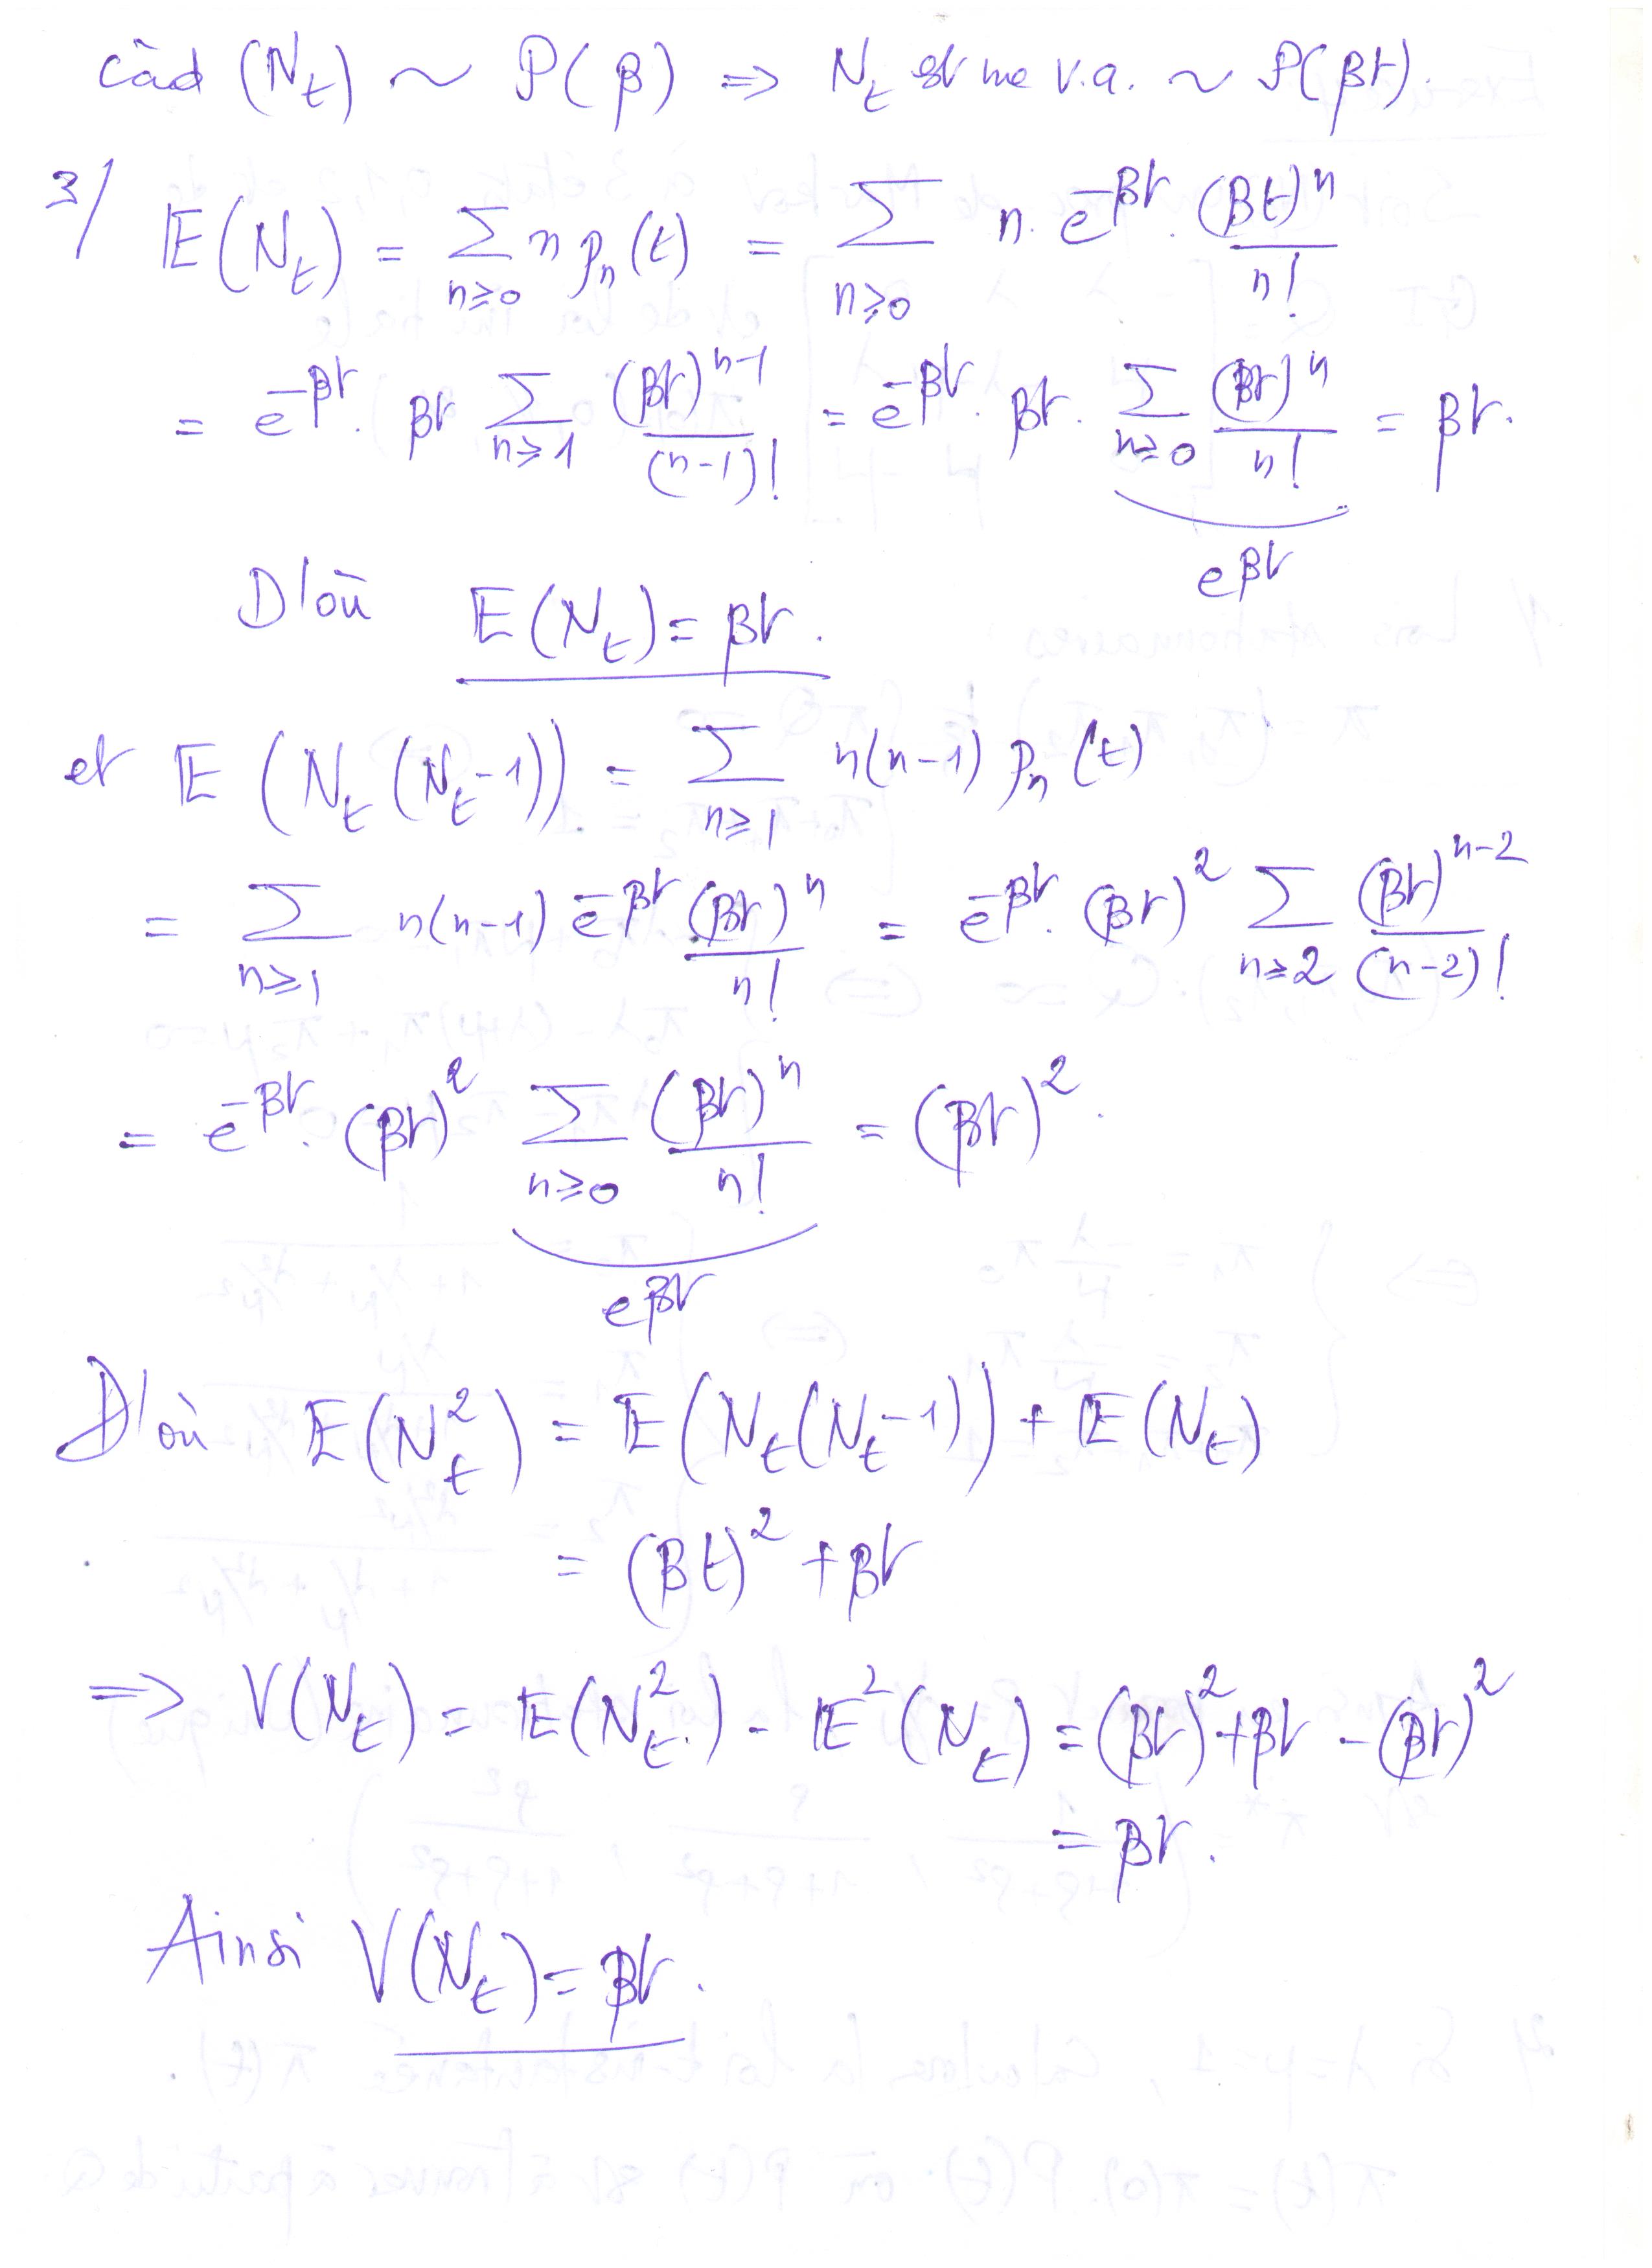 càd (N_t) ~ P(β) => N_t est une v.a. ~ P(βt).
3/ E(N_t) = Σ_{n≥0} n p_n(t) = Σ_{n≥0} n. e^{-βt}. (βt)^n / n!
= e^{-βt}. βt Σ_{n≥1} (βt)^{n-1} / (n-1)! = e^{-βt}. βt. Σ_{n≥0} (βt)^n / n! = βt.
e^{βt}
D'où E(N_t) = βt.
et E(N_t(N_t-1)) = Σ_{n≥1} n(n-1) p_n(t)
= Σ_{n≥1} n(n-1) e^{-βt} (βt)^n / n! = e^{-βt}. (βt)^2 Σ_{n≥2} (βt)^{n-2} / (n-2)!
= e^{-βt}. (βt)^2 Σ_{n≥0} (βt)^n / n! = (βt)^2.
e^{βt}
D'où E(N_t^2) = E(N_t(N_t-1)) + E(N_t)
= (βt)^2 + βt
=> V(N_t) = E(N_t^2) - E^2(N_t) = (βt)^2 + βt - (βt)^2
= βt.
Ainsi V(N_t) = βt.